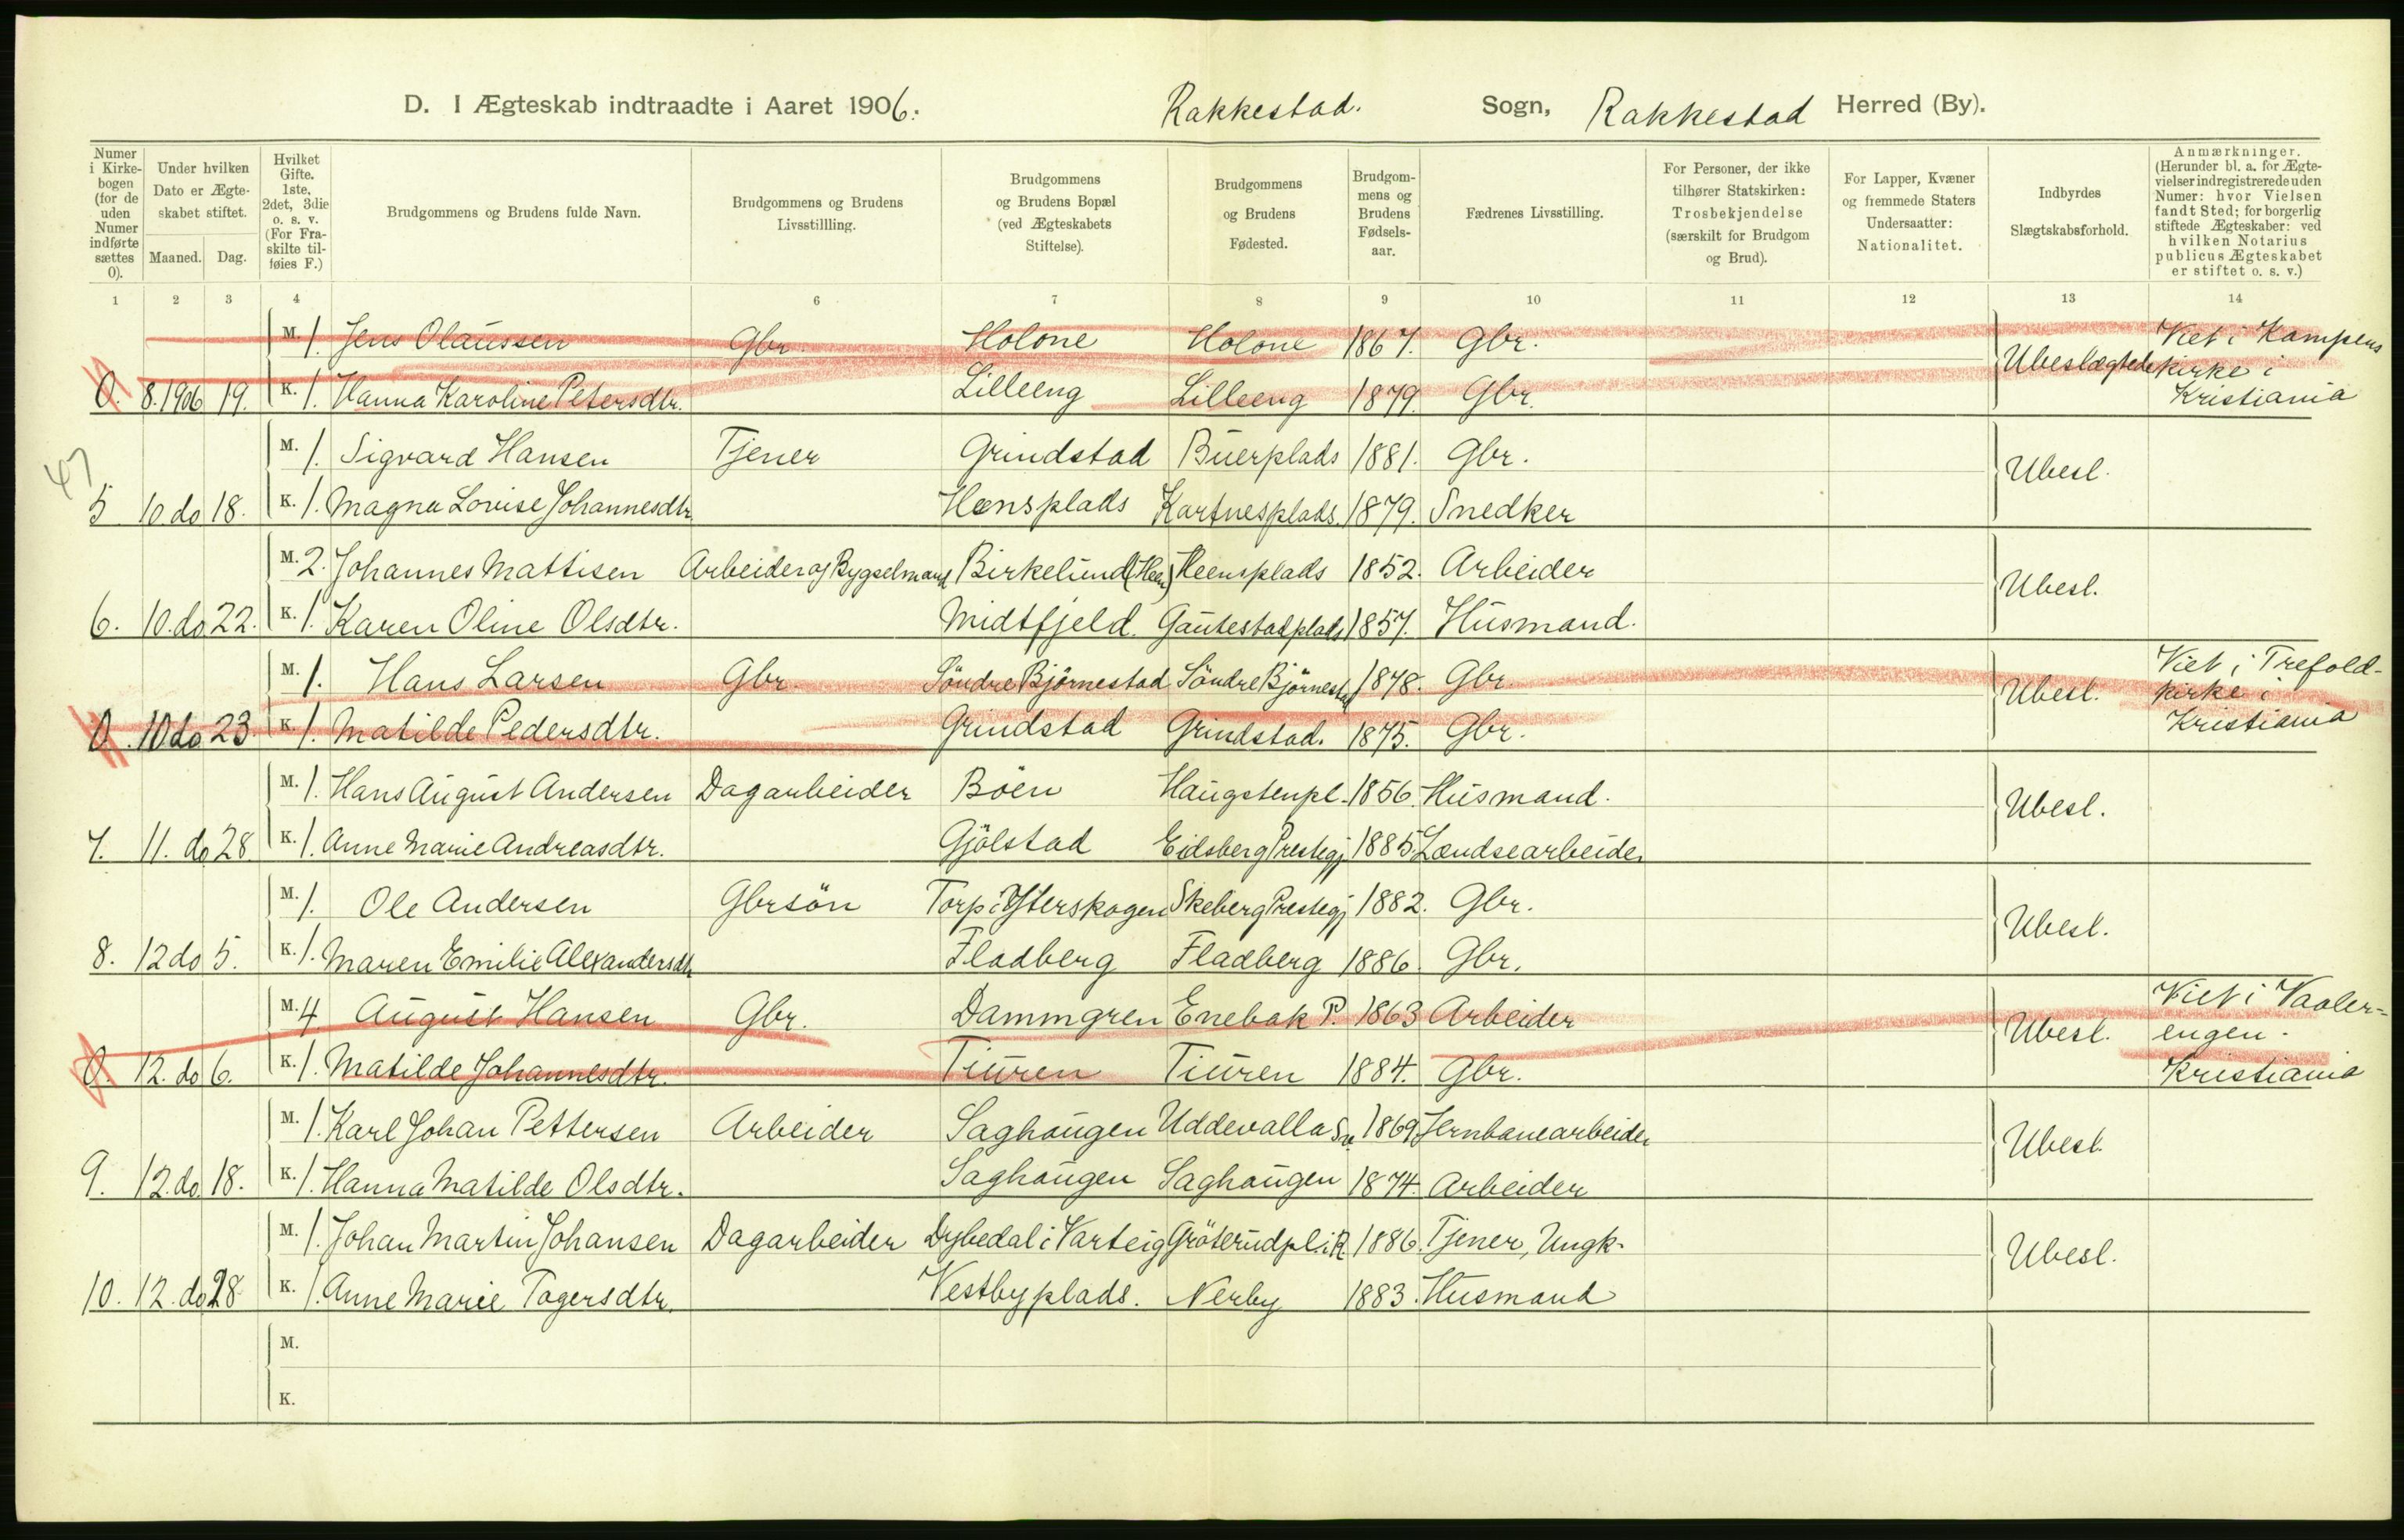 D. I Ægteskab indtraadte i Aaret 1906. Rakkestad. Sogn, Rakkestad Herred (By).
Numer i Kirkebogen (for de uden Numer indførte sættes 0). Under hvilken Dato er Ægteskabet stiftet. Maaned. Dag. Hvilket Gifte. 1ste, 2det, 3die o. s. v. (For Fraskilte tilføies F.) Brudgommens og Brudens fulde Navn. Brudgommens og Brudens Livsstillling. Brudgommens og Brudens Bopæl (ved Ægteskabets Stiftelse). Brudgommens og Brudens Fødested. Brudgommens og Brudens Fødselsaar. Fædrenes Livsstilling. For Personer, der ikke tilhører Statskirken: Trosbekjendelse (særskilt for Brudgom og Brud). For Lapper, Kvæner og fremmede Staters Undersaatter: Nationalitet. Indbyrdes Slægtskabsforhold. Anmærkninger. (Herunder bl. a. for Ægtevielser indregistrerede uden Numer: hvor Vielsen fandt Sted; for borgerlig stiftede Ægteskaber: ved hvilken Notarius publicus Ægteskabet er stiftet o. s. v.)
1 2 3 4 6 7 8 9 10 11 12 13 14
M. 1. Jens Olaussen Gbr. Holone Holone 1867. Gbr. Ubeslægtede Viet i Kampens kirke i Kristiania
0. 8.1906 19. K. 1. Hanna Karoline Petersdtr. Lilleeng Lilleeng 1879. Gbr.
47
M. 1. Sigvard Hansen Tjener Grindstad Buerplads 1881. Gbr. Ubesl.
5 10 do 18. K. 1. Magna Lovise Johannesdtr. Hensplads Kartnesplads. 1879. Snedker
M. 2. Johannes Mattisen Arbeider og Bygselmand Birkelund (Heen) Heensplads 1852. Arbeider Ubesl.
6. 10. do 22. K. 1. Karen Oline Olsdtr. Midtfjeld. Gautestadplads 1857. Husmand.
M. 1. Hans Larsen Gbr. Söndre Björnestad Söndre Björnestad 1878. Gbr. Ubesl. Viet i Trefold-kirke i Kristiania
0. 10 do 23 K. 1. Matilde Pedersdtr. Grindstad Grindstad. 1875. Gbr.
M. 1. Hans August Andersen Dagarbeider Böen Haugstenpl. 1856. Husmand. Ubesl.
7. 11. do 28. K. 1. Anne Marie Andreasdtr. Gjölstad Eidsberg Prestegj 1885. Landsearbeider
M. 1. Ole Andersen Gbrsön Torp i Ytterskogen Skeberg Prestegj 1882. Gbr. Ubesl.
8. 12 do 5. K. 1. Maren Emilie Alexandersdtr Fladberg Fladberg 1886. Gbr.
M. 4 August Hansen Gbr. Dammgren Enebak P. 1863 Arbeider Ubesl. Viet i Vaaler-engen. Kristiania
0. 12. do 6. K. 1. Matilde Johannesdtr. Tiuren Tiuren 1884. Gbr.
M. 1. Karl Johan Pettersen Arbeider Saghaugen Uddevalla Sv. 1869. Jernbanearbeider Ubesl.
9. 12. do 18. K. 1. Hanna Matilde Olsdtr. Saghaugen Saghaugen 1874. Arbeider
M. 1. Johan Martin Johansen Dagarbeider Dybedal i Varteig Gröterudpl. i R 1886. Tjener, Ungk. Ubesl.
10. 12. do 28 K. 1. Anne Marie Togersdtr. Vestbyplads. Nerby 1883. Husmand
M.
K.